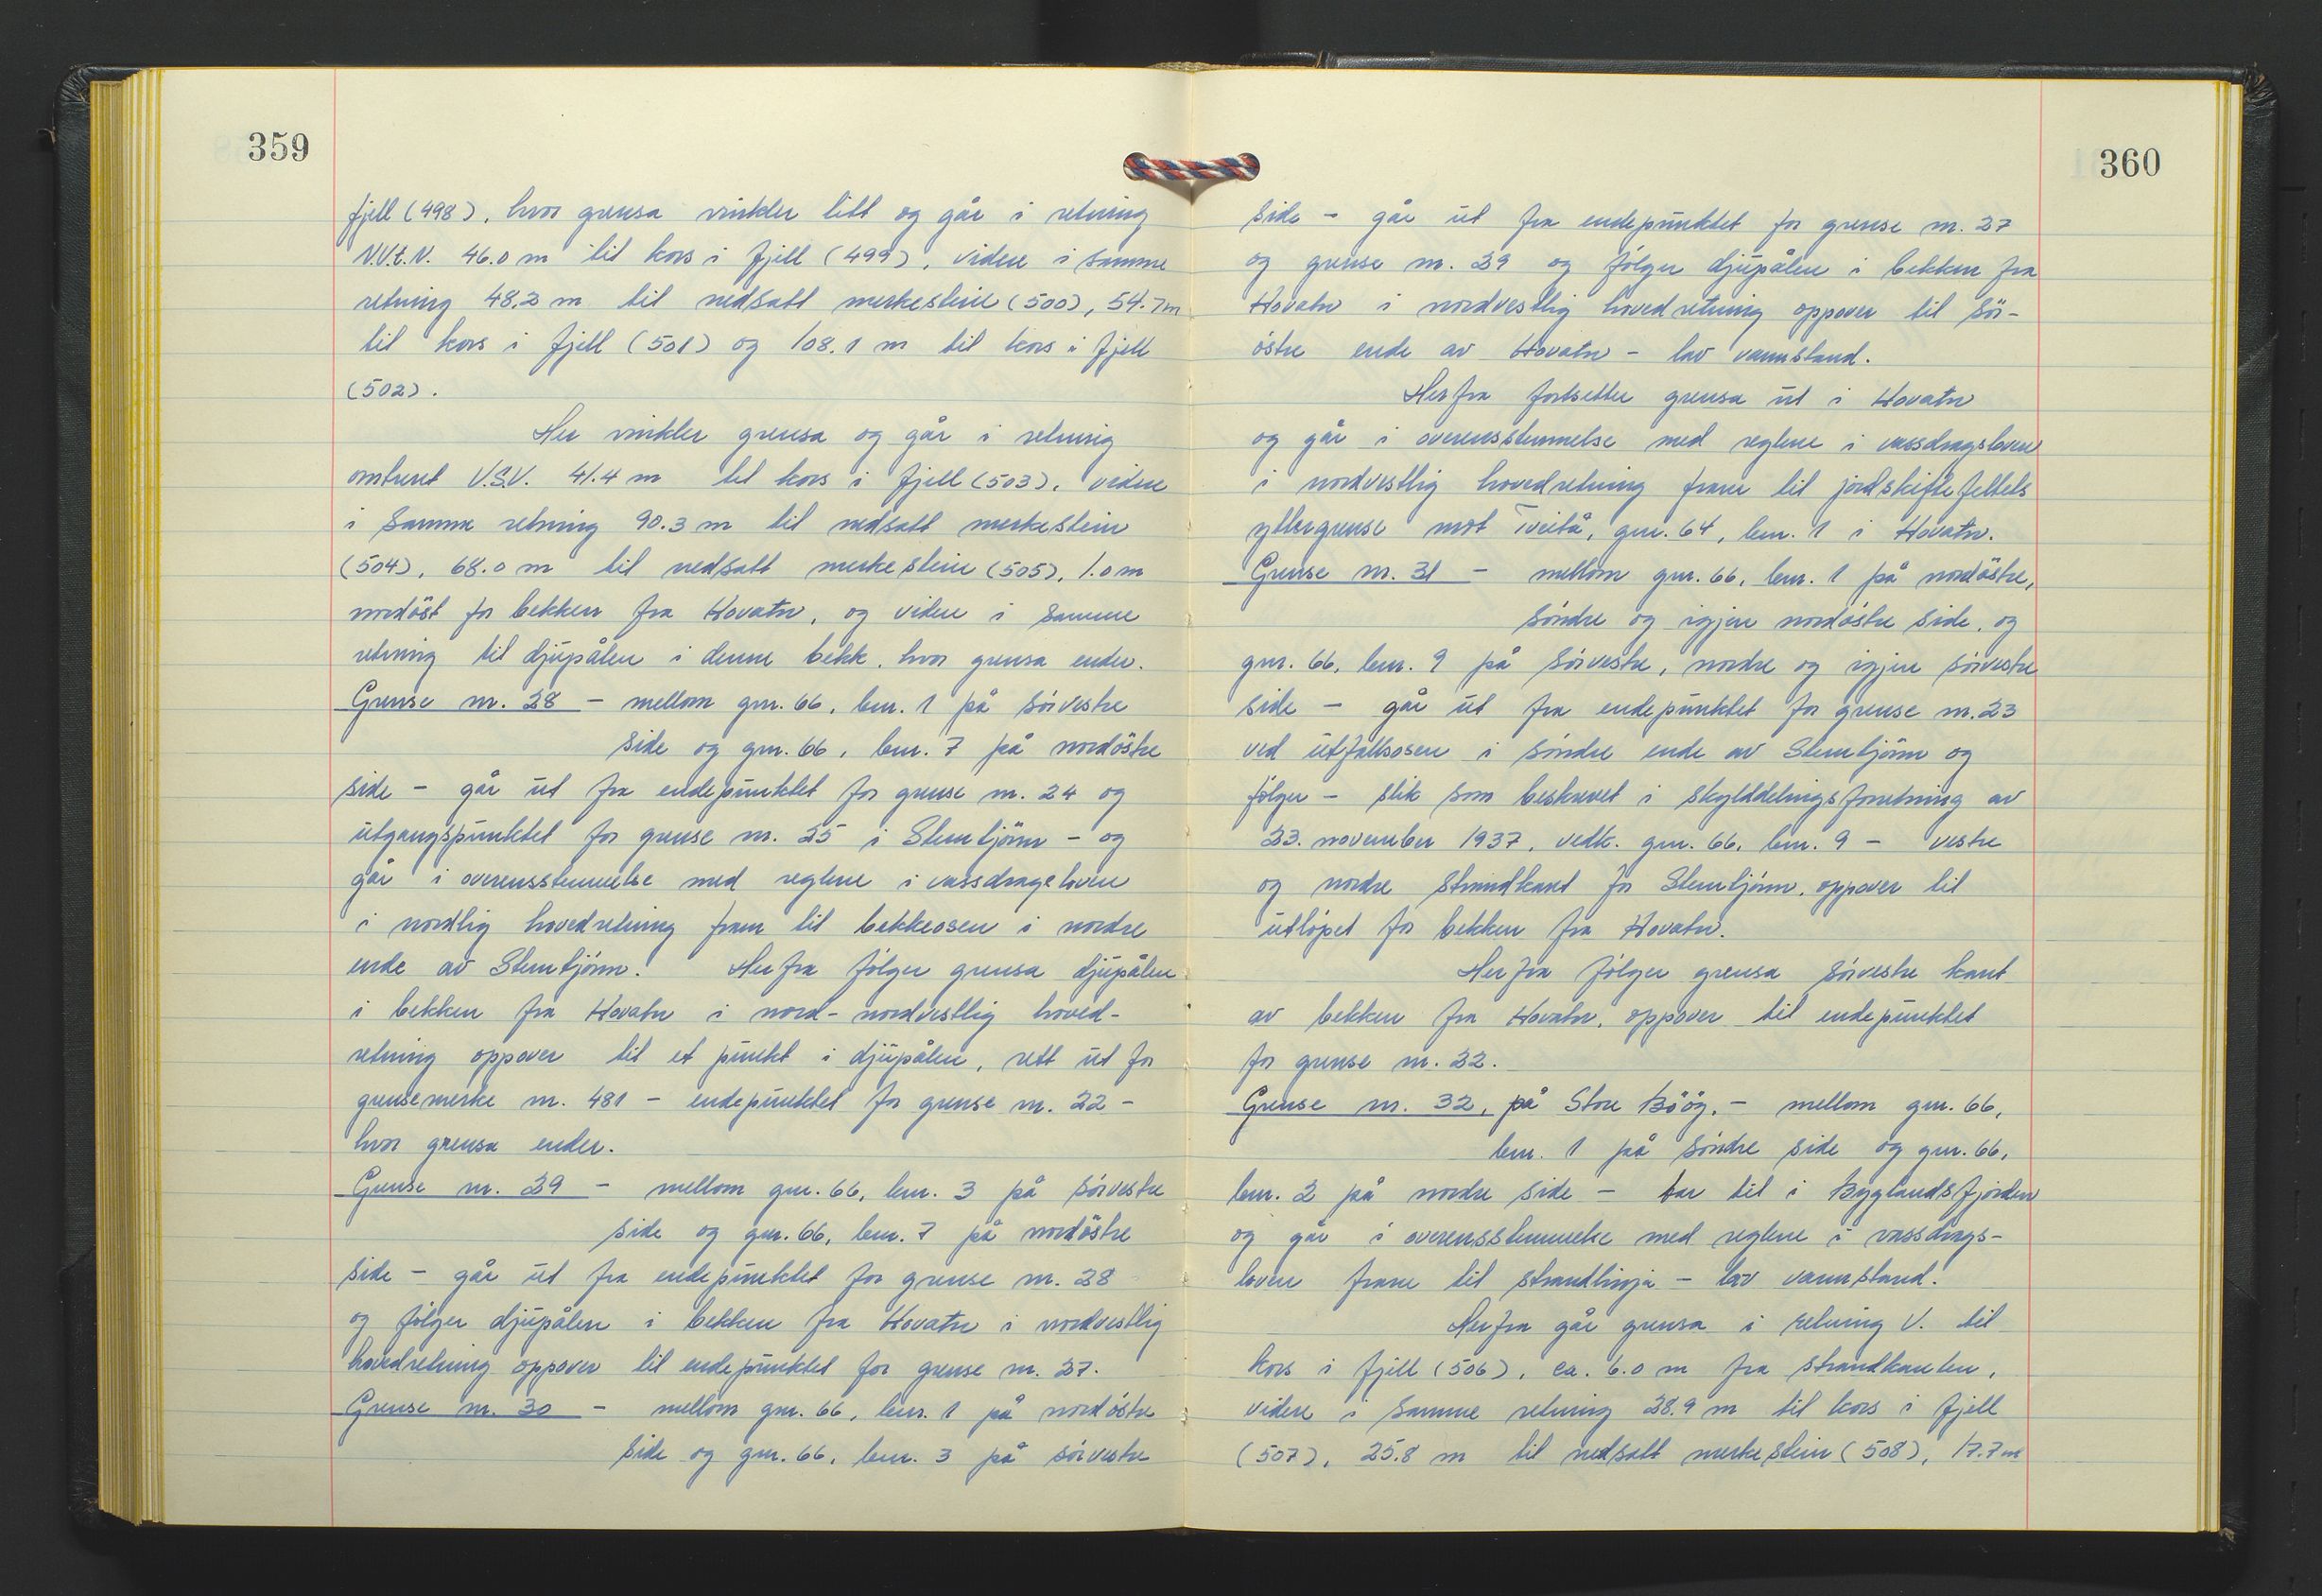 359
fjell (498), hvor grensa vinkler litt og går i retning
N.V.t.N. 46.0 m til kors i fjell (499), videre i samme
retning 48.2 m til nedsatt merkestein (500), 54.7 m
til kors i fjell (501) og 108.1 m til kors i fjell
(502).
Her vinkler grensa og går i retning
omtrent V.S.V. 41.4 m til kors i fjell (503), videre
i samme retning 90.3 m til nedsatt merkestein
(504), 68.0 m til nedsatt merkestein (505), 1.0 m
nordöst for bekken fra Hovatn, og videre i samme
retning til djupålen i denne bekk, hvor grensa ender.
Grense nr. 28 - mellom gnr. 66, bnr. 1 på sörvestre
side og gnr. 66, bnr. 7 på nordöstre
side - går ut fra endepunktet for grense nr. 24 og
utgangspunktet for grense nr. 25 i Stemtjönn - og
går i overensstemmelse med reglene i vassdragsloven
i nordlig hovedretning fram til bekkeosen i nordre
ende av Stemtjönn. Herfra fölger grensa djupålen
i bekken fra Hovatn i nord-nordvestlig hoved-
retning oppover til et punkt i djupålen, rett ut for
grensemerke nr. 481 - endepunktet for grense nr. 22 -
hvor grensa ender.
Grense nr. 29 - mellom gnr. 66, bnr. 3 på sörvestre
side og gnr. 66, bnr. 7 på nordöstre
side - går ut fra endepunktet for grense nr. 28
og fölger djupålen i bekken fra Hovatn i nordvestlig
hovedretning oppover til endepunktet for grense nr. 27.
Grense nr. 30 - mellom gnr. 66, bnr. 1 på nordöstre
side og gnr. 66, bnr. 3 på sörvestre
360
side - går ut fra endepunktet for grense nr. 27
og grense nr. 29 og fölger djupålen i bekken fra
Hovatn i nordvestlig hovedretning oppover til sör-
östre ende av Hovatn - lav vannstand.
Herfra fortsetter grensa ut i Hovatn
og går i overensstemmelse med reglene i vassdragsloven
i nordvestlig hovedretning fram til jordskiftefeltets
yttergrense mot Tveitå, gnr. 64, bnr. 1 i Hovatn.
Grense nr. 31 - mellom gnr. 66, bnr. 1 på nordöstre,
söndre og igjen nordöstre side, og
gnr. 66, bnr. 9 på sörvestre, nordre og igjen sörvestre
side - går ut fra endepunktet for grense nr. 23
ved utfallsosen i söndre ende av Stemtjönn og
fölger - slik som beskrevet i skylddelingsforretning av
23. november 1937, vedk. gnr. 66, bnr. 9 - vestre
og nordre strandkant for Stemtjönn, oppover til
utlöpet for bekken fra Hovatn.
Herfra fölger grensa sörvestre kant
av bekken fra Hovatn, oppover til endepunktet
for grense nr. 22.
Grense nr. 32, på Store Böög, - mellom gnr. 66,
bnr. 1 på söndre side og gnr. 66,
bnr. 2 på nordre side - tar til i Byglandsfjorden
og går i overensstemmelse med reglene i vassdrags-
loven fram til strandlinja - lav vannstand.
Herfra går grensa i retning V. til
kors i fjell (506), ca. 6.0 m fra strandkanten,
videre i samme retning 28.9 m til kors i fjell
(507), 25.8 m til nedsatt merkestein (508), 17.7 m